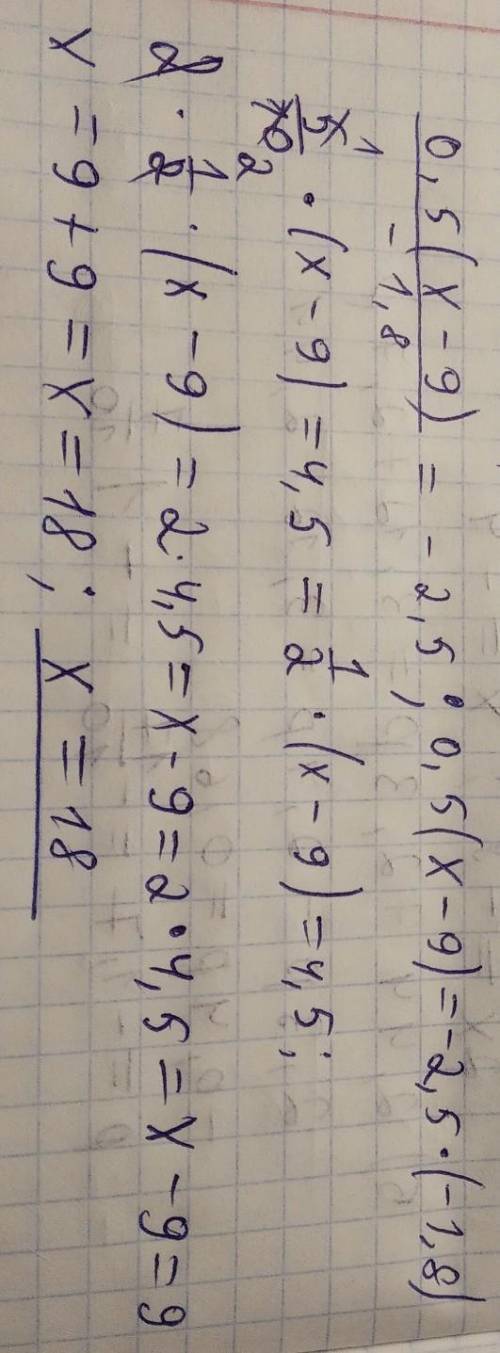 0,5(x-9)/-1,8 = -2,5; 0,5(x-9)=-2,5·(-1,8)
5 1/10 2 · (x-9)=4,5 = 1/2 · (x-9)=4,5;
2 · 1/2 · (x-9)=2·4,5=x-9=2·4,5=x-9=9
x=9+9=x=18; x=18